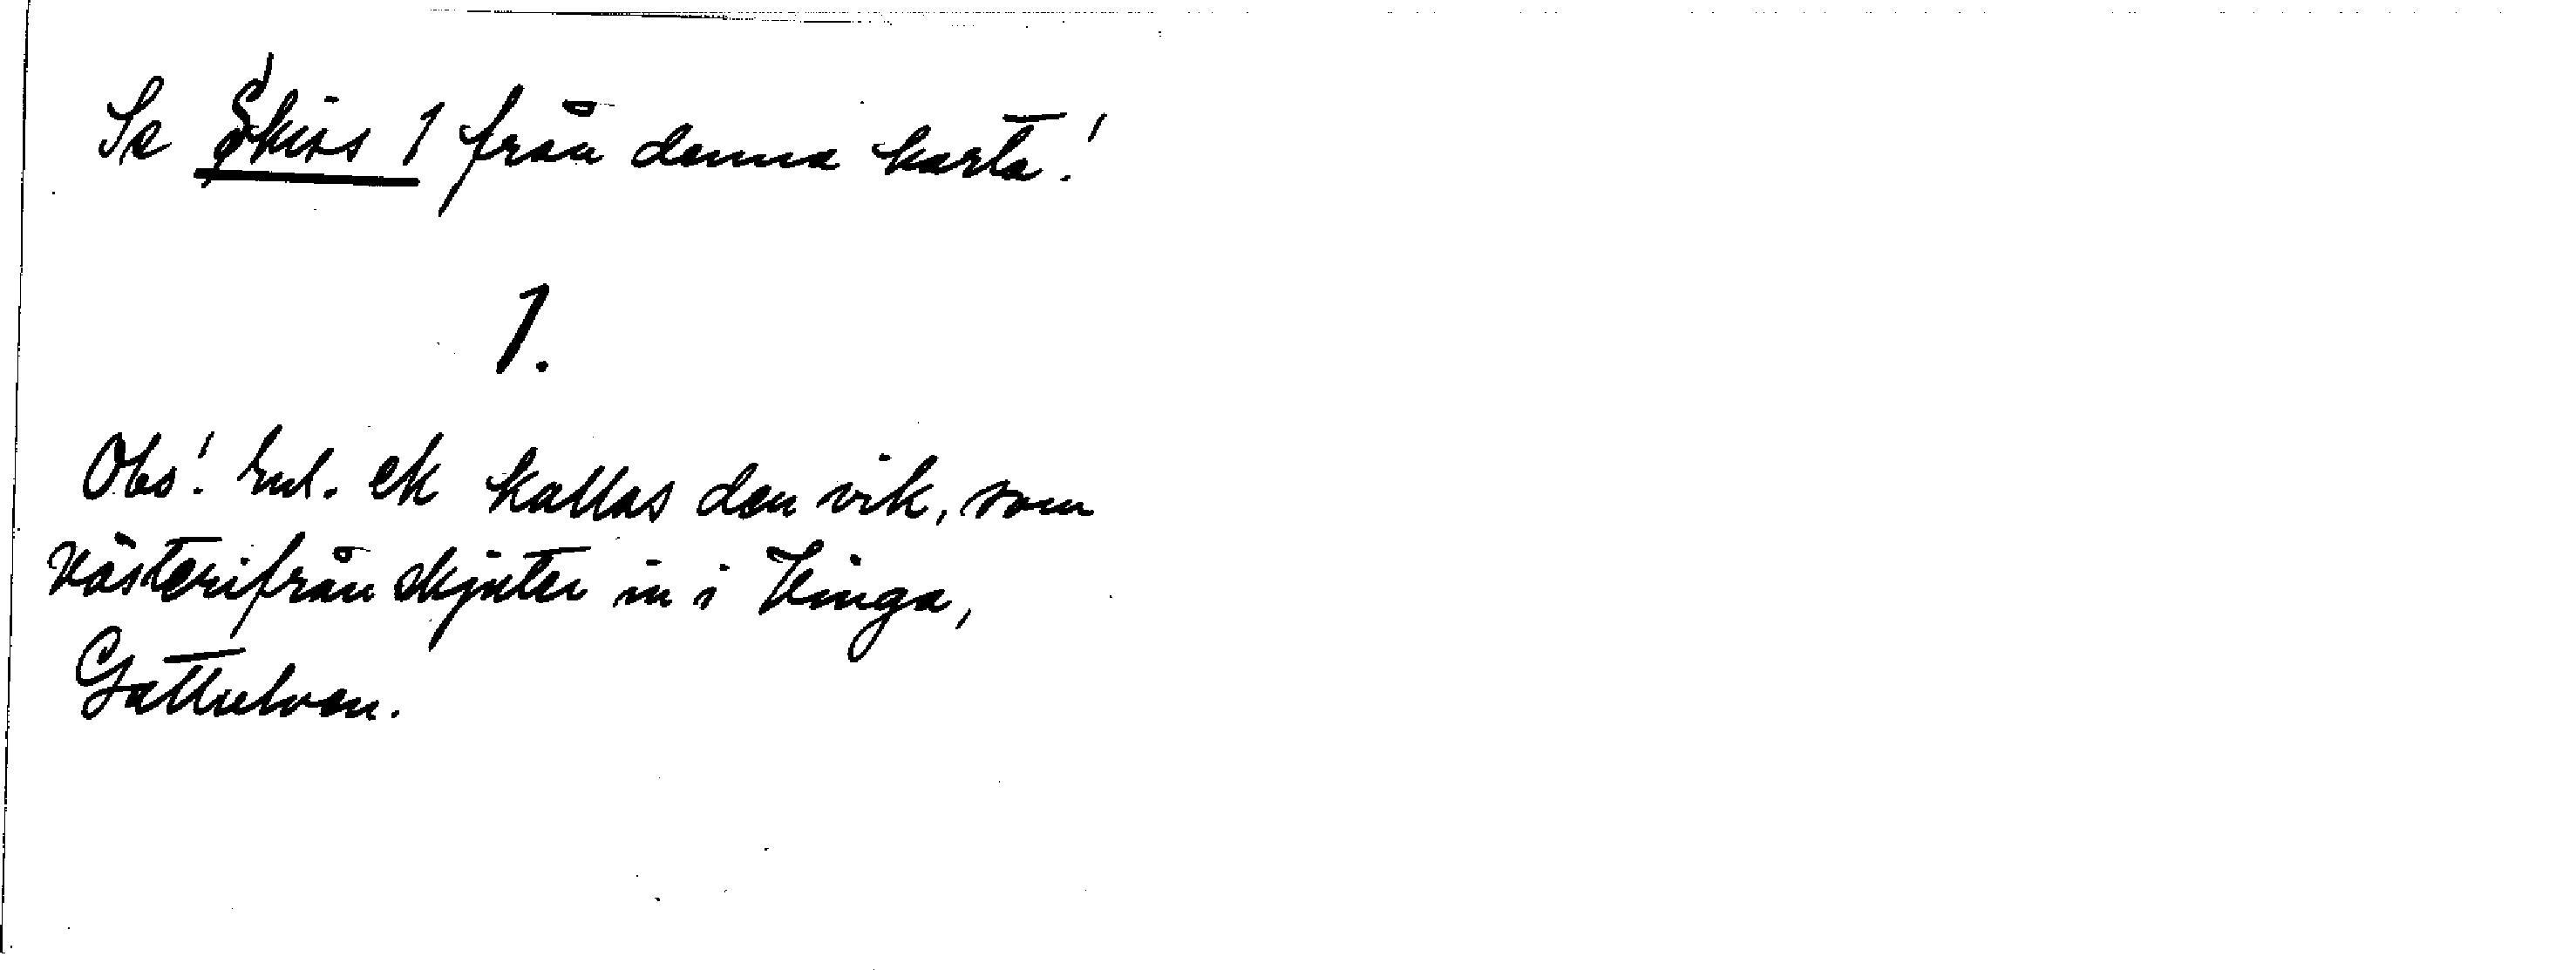 Se Skiss 1 från denna karta!
1.
Obs! Enl. ek kallas den vik, som
västerifrån skjuter in i Vinga,
Gattulven.